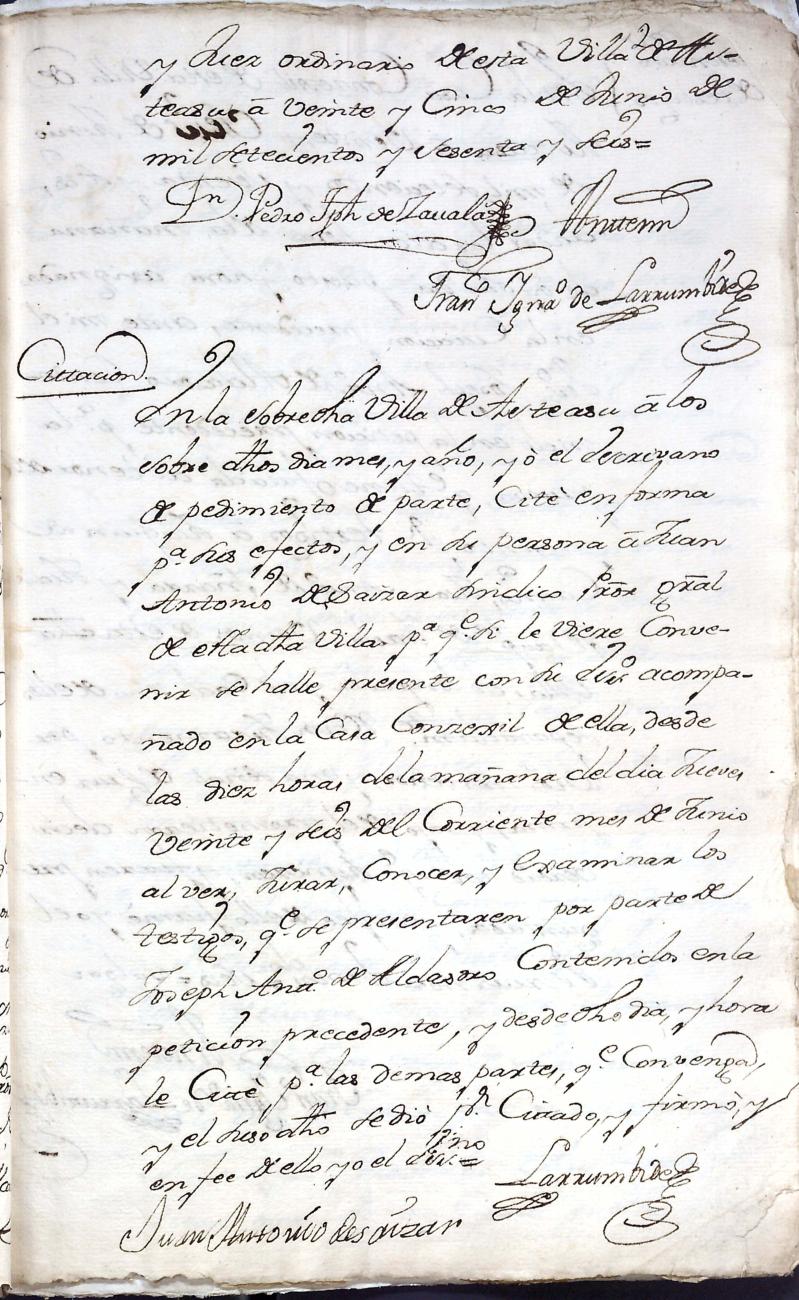 y Juez ordinario de esta Villa de As-
teasu à veinte y Cinco de Junio de
mil setecientos y sesenta y seis=
Dn. Pedro Jph de Zavala Antemi
Franco Ignaº de Larrumbide
Cittacion.
En la sobredha Villa de Asteasu à los
sobre dhos dia mes, y año, yò el Escrivano
de pedimiento de parte, Citè en forma
pª. sus efectos, y en su persona à Juan
Antonio de Saizar sindico Pror. gral
de esta dha Villa pª qe. si le viere Conve-
nir se halle presente con su acompa-
ñado en la Casa Conzexil de ella, desde
las diez horas de la mañana del dia Jueves
veinte y seis del Corriente mes de Junio
al ver, Jurar, Conocer, y Examinar los
testigos, qe. se presentaren por parte de
Joseph Antº. de Aldasoro Contenidos en la
peticion precedente, y desde dho dia, y hora
le Citè pª. las demas partes, qe. Convenga,
y el susodho se diò pr. Cittado, y firmò, y
en fee de ello yo el Essno.=
Larrumbide
Juan Antonio de Saizar